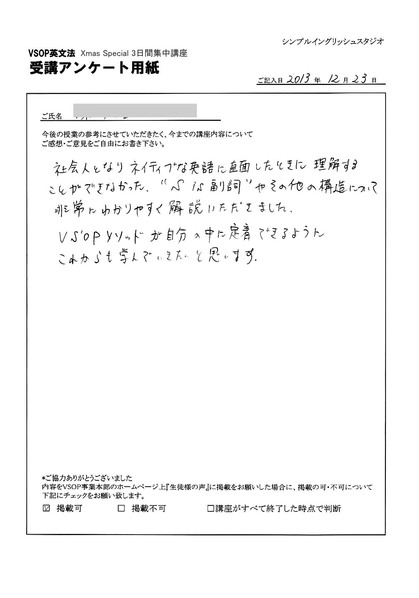 シンプルイングリッシュスタジオ
VSOP英文法 Xmas Special 3日間集中講座
受講アンケート用紙
ご記入日 2013 年 12 月 23 日
ご氏名
今後の授業の参考にさせていただきたく、今までの講座内容について
ご感想・ご意見をご自由にお書き下さい。
社会人となりネイティブな英語に直面したときに理解する
ことができなかった、“S is 副詞”やその他の構造について
非常にわかりやすく解説いただきました。
VSOPメソッドが自分の中に定着できるように
これからも学んでいきたいと思います。
*ご協力ありがとうございました
内容をVSOP事業本部のホームページ上『生徒様の声』に掲載をお願いした場合に、掲載の可・不可について
下記にチェックをお願い致します。
☑ 掲載可 □ 掲載不可 □講座がすべて終了した時点で判断